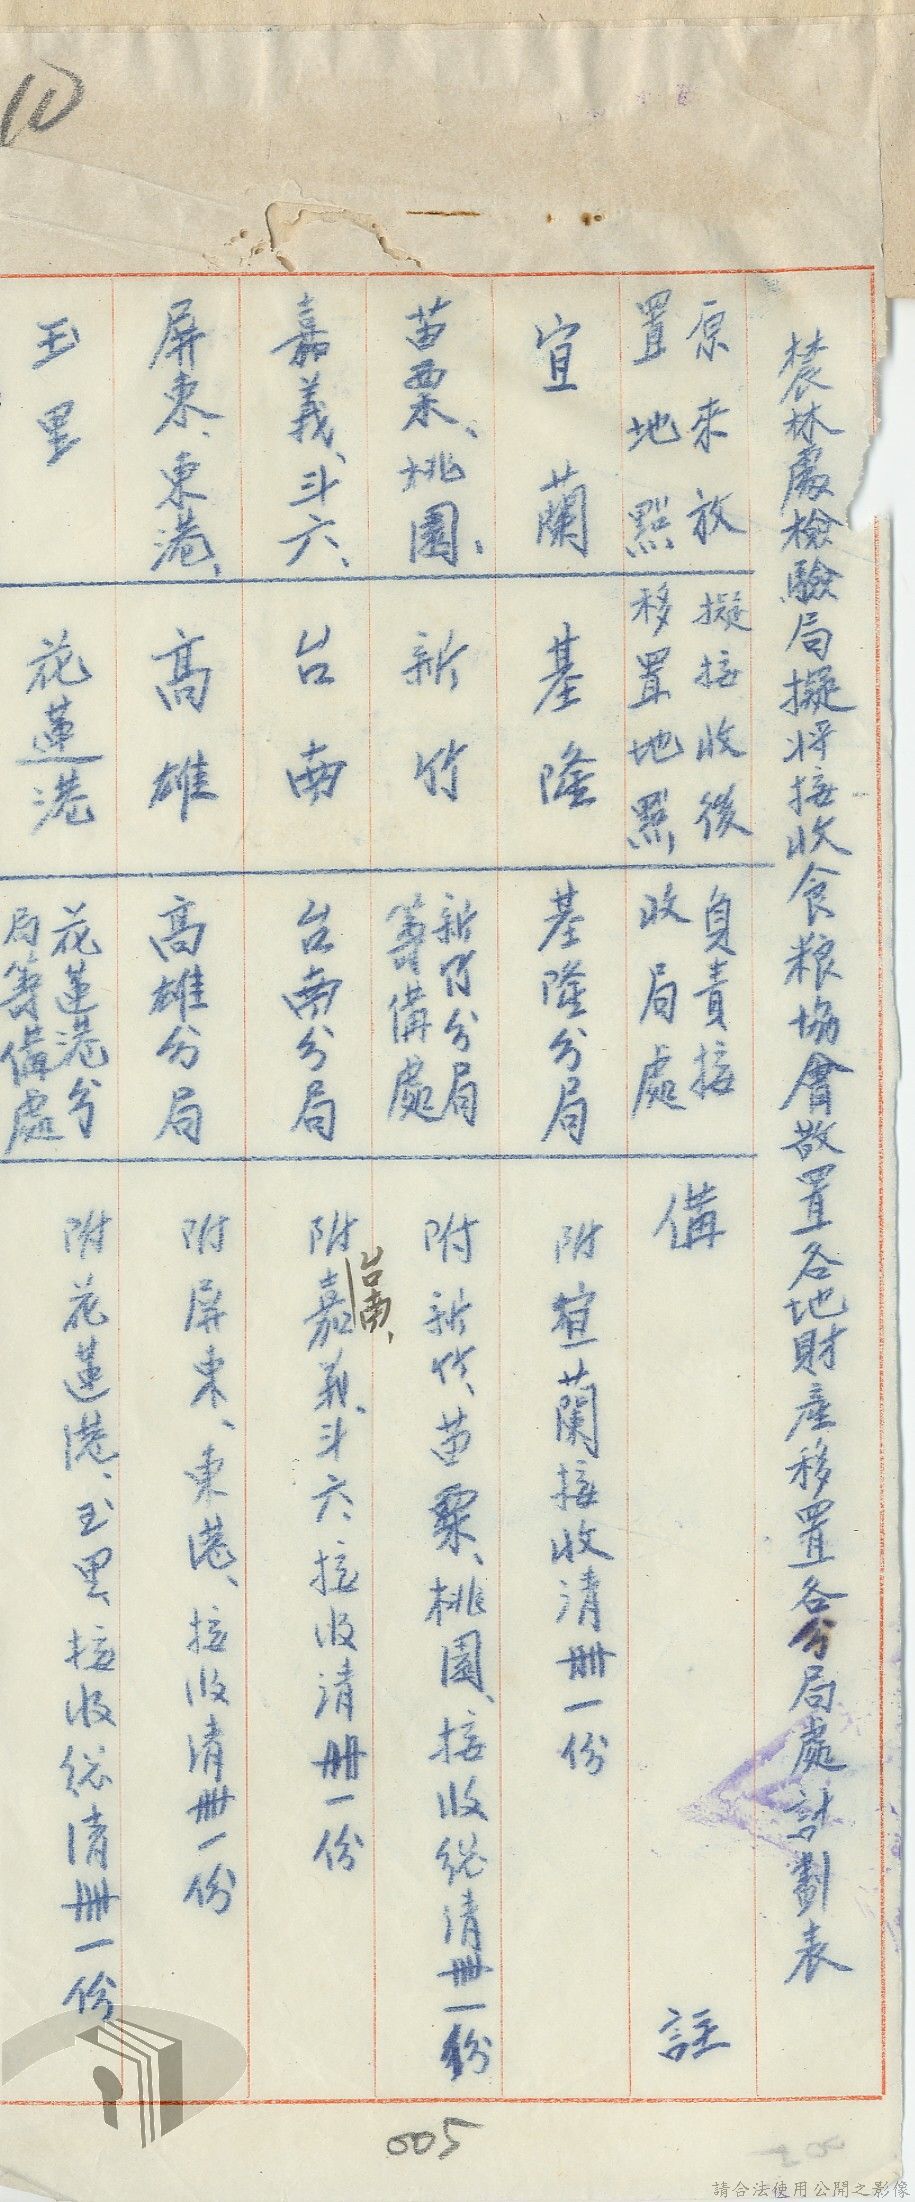 農林處檢驗局擬將接收食粮協會散置各地財產移置各分局處計劃表
原來放置地點
擬接收後移置地點
負責接收局處
備註
宜蘭
基隆
基隆分局
附宜蘭接收清冊一份
苗栗、桃園、
新竹
新竹分局籌備處
附新竹、苗栗、桃園、接收總清冊一份
嘉義、斗六、
台南
台南分局
附台南、嘉義、斗六、接收清冊一份
屏東、東港、
高雄
高雄分局
附屏東、東港、接收清冊一份
玉里
花蓮港
花蓮港分局籌備處
附花蓮港、玉里、接收總清冊一份
005
請合法使用公開之影像